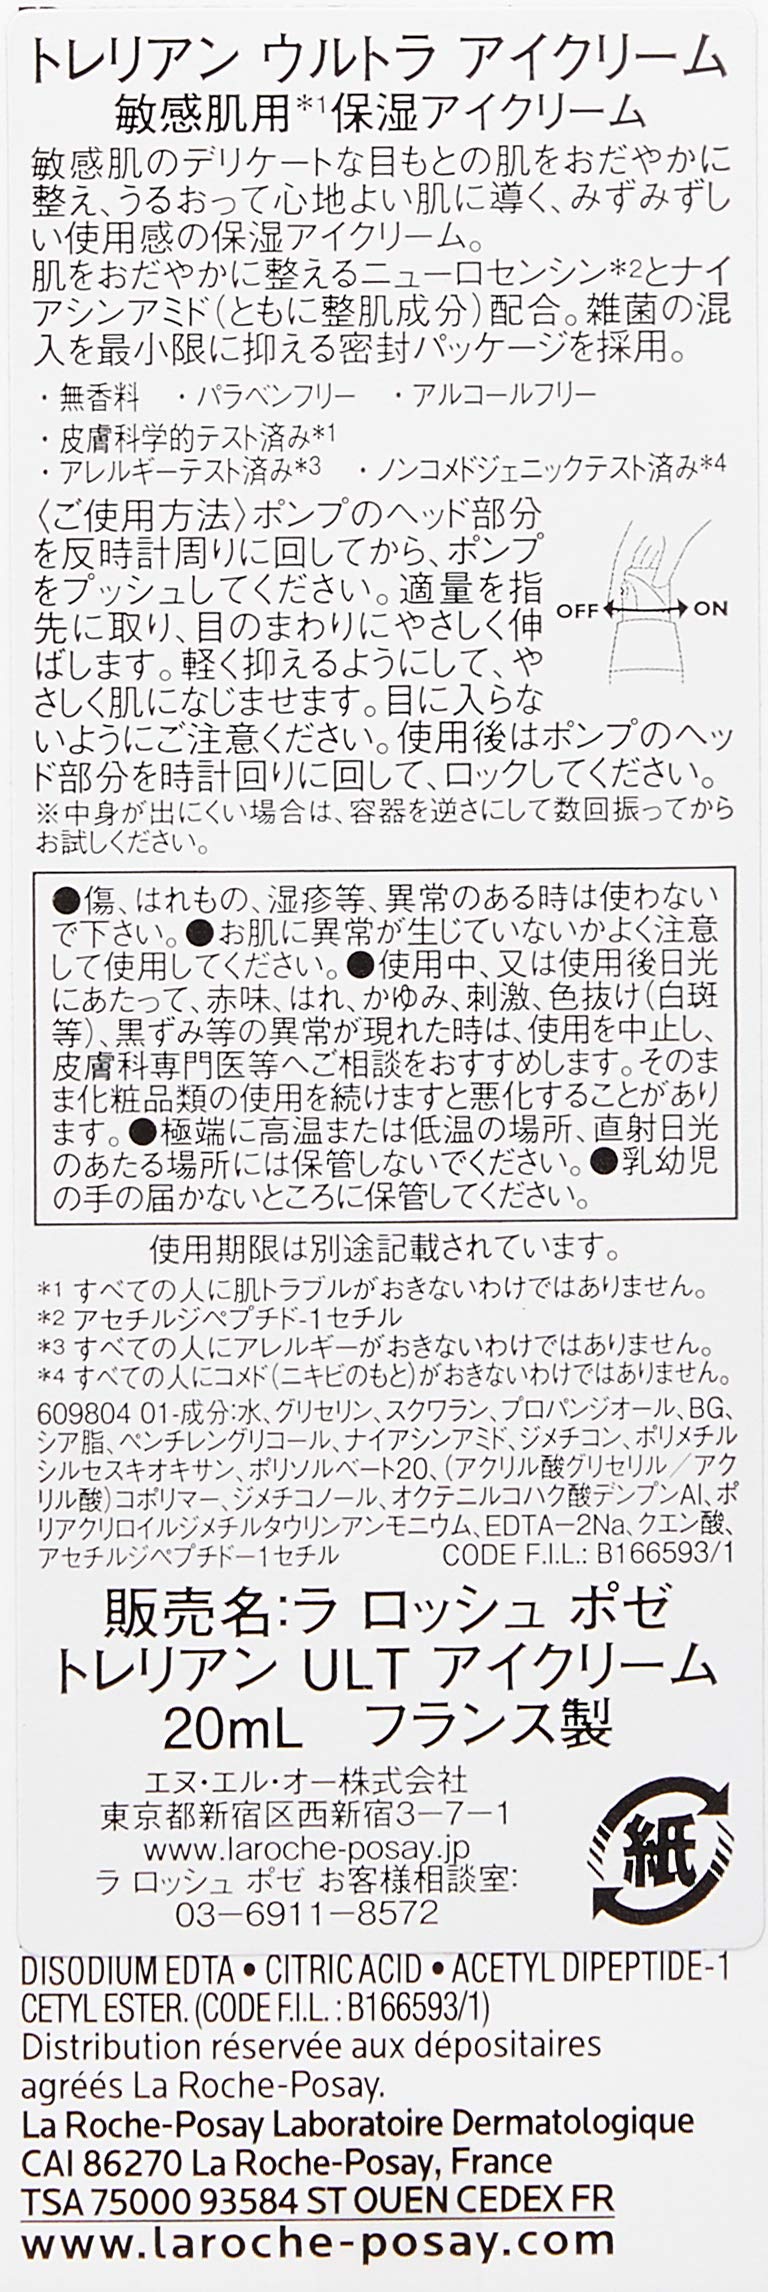 トレリアン ウルトラ アイクリーム
敏感肌用*1保湿アイクリーム
敏感肌のデリケートな目もとの肌をおだやかに
整え、うるおって心地よい肌に導く、みずみずし
い使用感の保湿アイクリーム。
肌をおだやかに整えるニューロセンシン*2とナイ
アシンアミド(ともに整肌成分)配合。雑菌の混
入を最小限に抑える密封パッケージを採用。
・無香料 ・パラベンフリー ・アルコールフリー
・皮膚科学的テスト済み*1
・アレルギーテスト済み*3 ・ノンコメドジェニックテスト済み*4
〈ご使用方法〉ポンプのヘッド部分
を反時計周りに回してから、ポンプ
をプッシュしてください。適量を指
先に取り、目のまわりにやさしく伸
ばします。軽く抑えるようにして、や
さしく肌になじませます。目に入らな
いようにご注意ください。使用後はポンプのヘッ
ド部分を時計回りに回して、ロックしてください。
OFF ON
※中身が出にくい場合は、容器を逆さにして数回振ってから
お試しください。
●傷、はれもの、湿疹等、異常のある時は使わない
で下さい。●お肌に異常が生じていないかよく注意
して使用してください。●使用中、又は使用後日光
にあたって、赤味、はれ、かゆみ、刺激、色抜け(白斑
等)、黒ずみ等の異常が現れた時は、使用を中止し、
皮膚科専門医等へご相談をおすすめします。そのま
ま化粧品類の使用を続けますと悪化することがあり
ます。●極端に高温または低温の場所、直射日光
のあたる場所には保管しないでください。●乳幼児
の手の届かないところに保管してください。
使用期限は別途記載されています。
*1 すべての人に肌トラブルがおきないわけではありません。
*2 アセチルジペプチド-1セチル
*3 すべての人にアレルギーがおきないわけではありません。
*4 すべての人にコメド(ニキビのもと)がおきないわけではありません。
609804 01-成分:水、グリセリン、スクワラン、プロパンジオール、BG、
シア脂、ペンチレングリコール、ナイアシンアミド、ジメチコン、ポリメチル
シルセスキオキサン、ポリソルベート20、(アクリル酸グリセリル/アク
リル酸)コポリマー、ジメチコノール、オクテニルコハク酸デンプンAl、ポ
リアクリロイルジメチルタウリンアンモニウム、EDTA-2Na、クエン酸、
アセチルジペプチド-1セチル CODE F.I.L.: B166593/1
販売名:ラ ロッシュ ポゼ
トレリアン ULT アイクリーム
20mL フランス製
エヌ・エル・オー株式会社
東京都新宿区西新宿3-7-1
www.laroche-posay.jp
ラ ロッシュ ポゼ お客様相談室:
03-6911-8572
紙
DISODIUM EDTA • CITRIC ACID • ACETYL DIPEPTIDE-1
CETYL ESTER. (CODE F.I.L. : B166593/1)
Distribution réservée aux dépositaires
agréés La Roche-Posay.
La Roche-Posay Laboratoire Dermatologique
CAI 86270 La Roche-Posay, France
TSA 75000 93584 ST OUEN CEDEX FR
www.laroche-posay.com